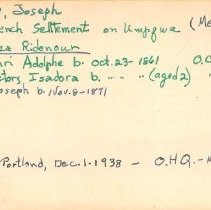 , Joseph
ench Settlement on Umpqua (Me
Ridenour
ri Adolphe b. oct. 23 - 1861 O.C
tors, Isadora b. .. .. .. (aged 2)
oseph b. Nov. 8 - 1871
Portland, Dec. 1 - 1938 - O.H.Q. -